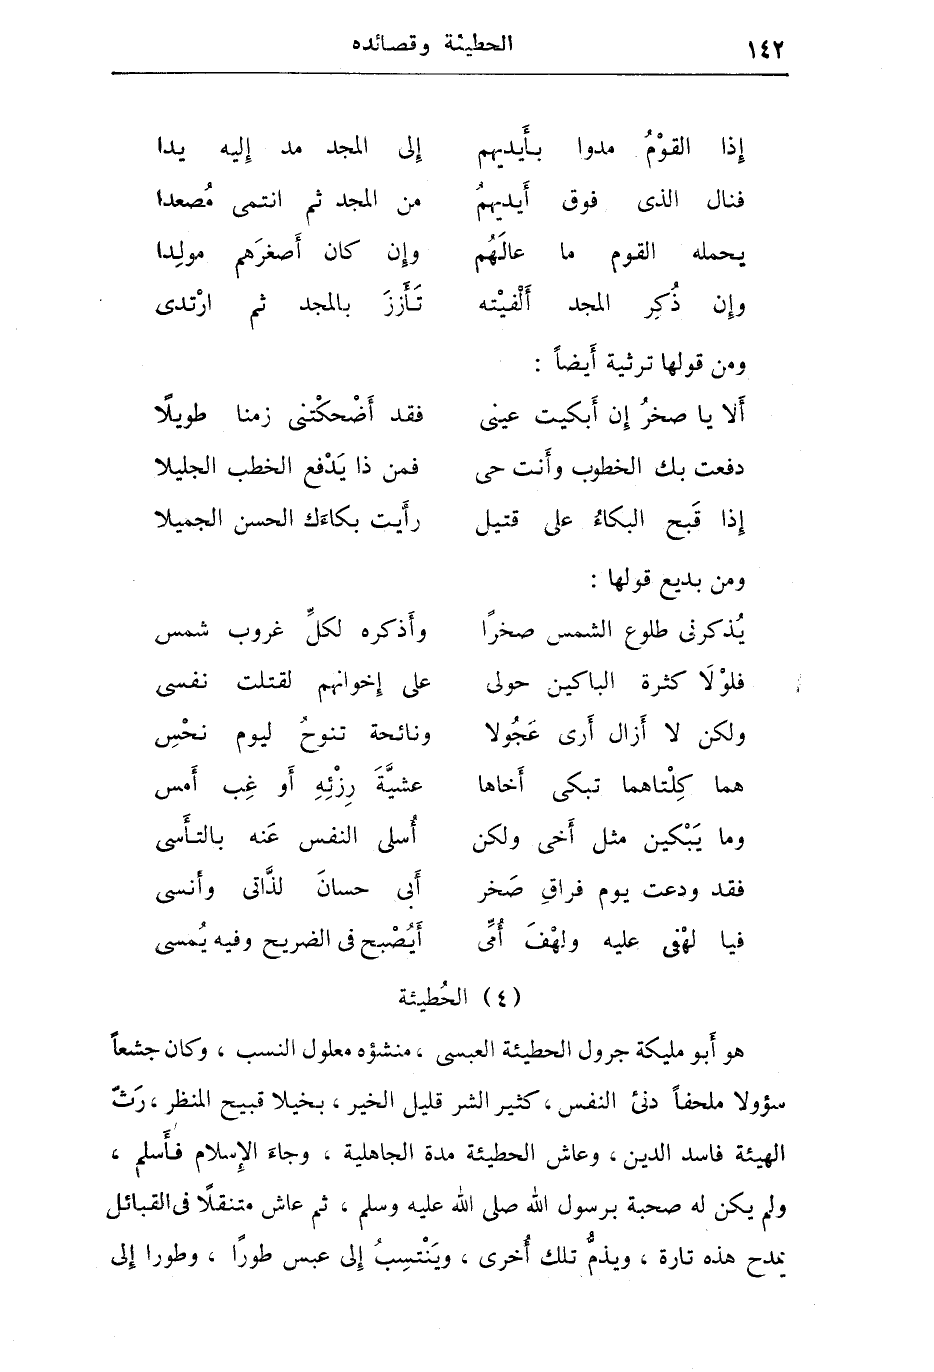 ١٤٢ الحطيئة وقصائده
إذا القوْمُ مدوا بأَيديهم إلى المجد مد إليه يدا
فنال الذى فوق أَيديهمُ من المجد ثم انتمى مُصعدا
يحمله القوم ما عالَهُم وإن كان أَصغرَهم مولِدا
وإن ذُكِر المجد أَلْفيْته تَأَزرَ بالمجد ثم ارْتدى
ومن قولها ترثية أَيضاً :
أَلا يا صخرُ إن أَبكيت عينى فقد أَضْحكْتنى زمنا طويلًا
دفعت بك الخطوب وأَنت حى فمن ذا يَدْفع الخطب الجليلا
إذا قَبح البكاءُ على قتيل رأَيت بكاءَك الحسن الجميلا
ومن بديع قولها :
يُذكرنى طلوع الشمس صخرًا وأَذكره لكلِّ غروب شمس
فلوْلَا كثرة الباكين حولى على إخوانهم لقتلت نفسى
ولكن لا أَزال أَرى عَجُولا ونائحة تنوحُ ليوم نحْسِ
هما كِلْتاهما تبكى أَخاها عشيَّةَ رِزْئِهِ أَو غِب أَمس
وما يَبْكين مثل أَخى ولكن أُسلى النفس عَنه بالتأَسى
فقد ودعت يوم فراقِ صَخر أَبى حسانَ لذَّاتى وأنسى
فيا لهْفى عليه ولهْفَ أُمِّى أَيُصْبح فى الضريح وفيه يُمسى
(٤) الحُطيئة
هو أَبو مليكة جرول الحطيئة العبسى ، منشؤه معلول النسب ، وكان جشعاً
سؤولا ملحفاً دنئ النفس ، كثير الشر قليل الخير ، بخيلا قبيح المنظر ، رَثّ
الهيئة فاسد الدين ، وعاش الحطيئة مدة الجاهلية ، وجاءَ الإسلام فأَسلم ،
ولم يكن له صحبة برسول الله صلى الله عليه وسلم ، ثم عاش متنقلًا فى القبائل
يمدح هذه تارة ، ويذمُّ تلك أُخرى ، ويَنْتسِبُ إلى عبس طورًا ، وطورا إلى